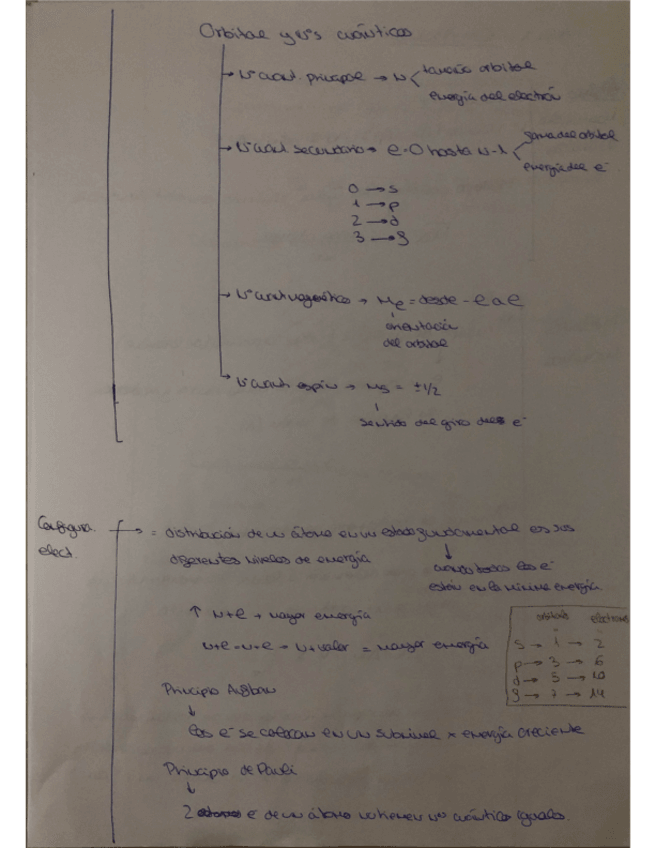 Orbital y nºs cuánticos
→ Nº cuant. principal → n < tamaño orbital
energía del electrón
→ Nº cuant secundario → l = 0 hasta n-1 < forma del orbital
energía del e⁻
0 → s
1 → p
2 → d
3 → f
→ Nº cuant magnético → ml = desde -l a l
orientación
del orbital
→ Nº cuant espín → ms = ±1/2
sentido del giro del e⁻
Configura.
elect.
→ = distribución de un átomo en un estado fundamental en sus
diferentes niveles de energía
↓
cuando todos los e⁻
están en la mínima energía
↑ n+l → mayor energía
n+l = n+l → n + valor = mayor energía
orbitales electrones
s → 1 → 2
p → 3 → 6
d → 5 → 10
f → 7 → 14
Principio Aufbau
↓
los e⁻ se colocan en un subnivel x energía creciente
Principio de Pauli
↓
2 e⁻ de un átomo no tienen nºs cuántico iguales.